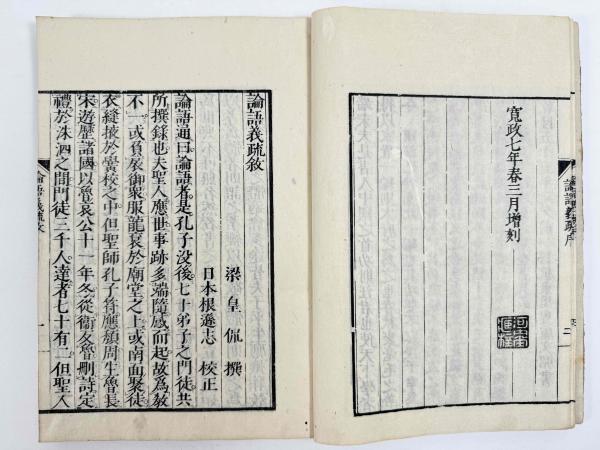 寬政七年春三月增刻
論語義疏敘
梁皇侃撰
日本根遜志校正
論語通曰論語者是孔子没後七十弟子之門徒共
所撰錄也夫聖人應世事跡多端隨感而起故爲敎
不一或負扆御衆服龍衮於廟堂之上或南面聚徒
衣縫掖於黌校之中但聖師孔子符應頽周生魯長
宋遊歷諸國以魯哀公十一年冬從衞反魯刪詩定
禮於洙泗之間門徒三千人達者七十有二但聖人
論語義疏敘
一